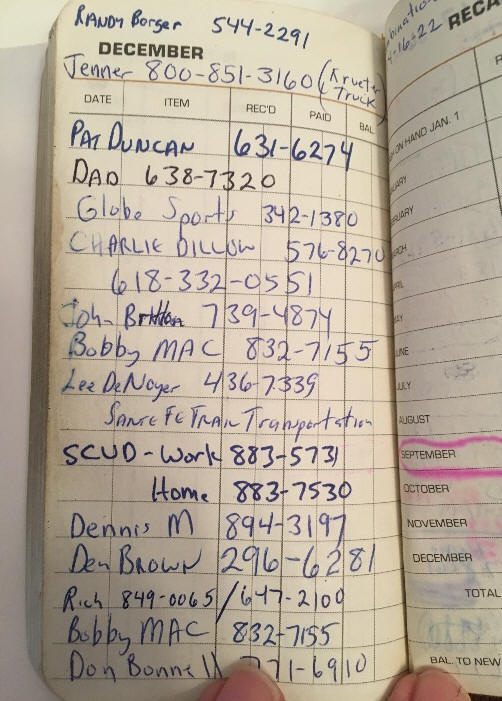 RANDY Borger 544-2291
DECEMBER
Jenner 800-851-3160 (Krueter Truck)
DATE ITEM REC'D PAID BAL
PAT DUNCAN 631-6274
DAD 638-7320
Globe Sports 342-1380
CHARLIE DILLOW 576-8270
618-332-0551
John 739-4874
Bobby MAC 832-7155
Lee DeNoyer 436-7339
SANTE FE TRAIN Transportation
SCUD - Work 883-5731
Home 883-7530
Dennis M 894-3197
Den BROWN 296-6281
Rich 849-0065 / 647-2100
Bobby MAC 832-7155
Don Bonnell 771-6910
-16-22 RECA
ON HAND JAN. 1
UARY
RUARY
ARCH
PRIL
MAY
JUNE
JULY
AUGUST
SEPTEMBER
OCTOBER
NOVEMBER
DECEMBER
TOTAL
BAL. TO NEW